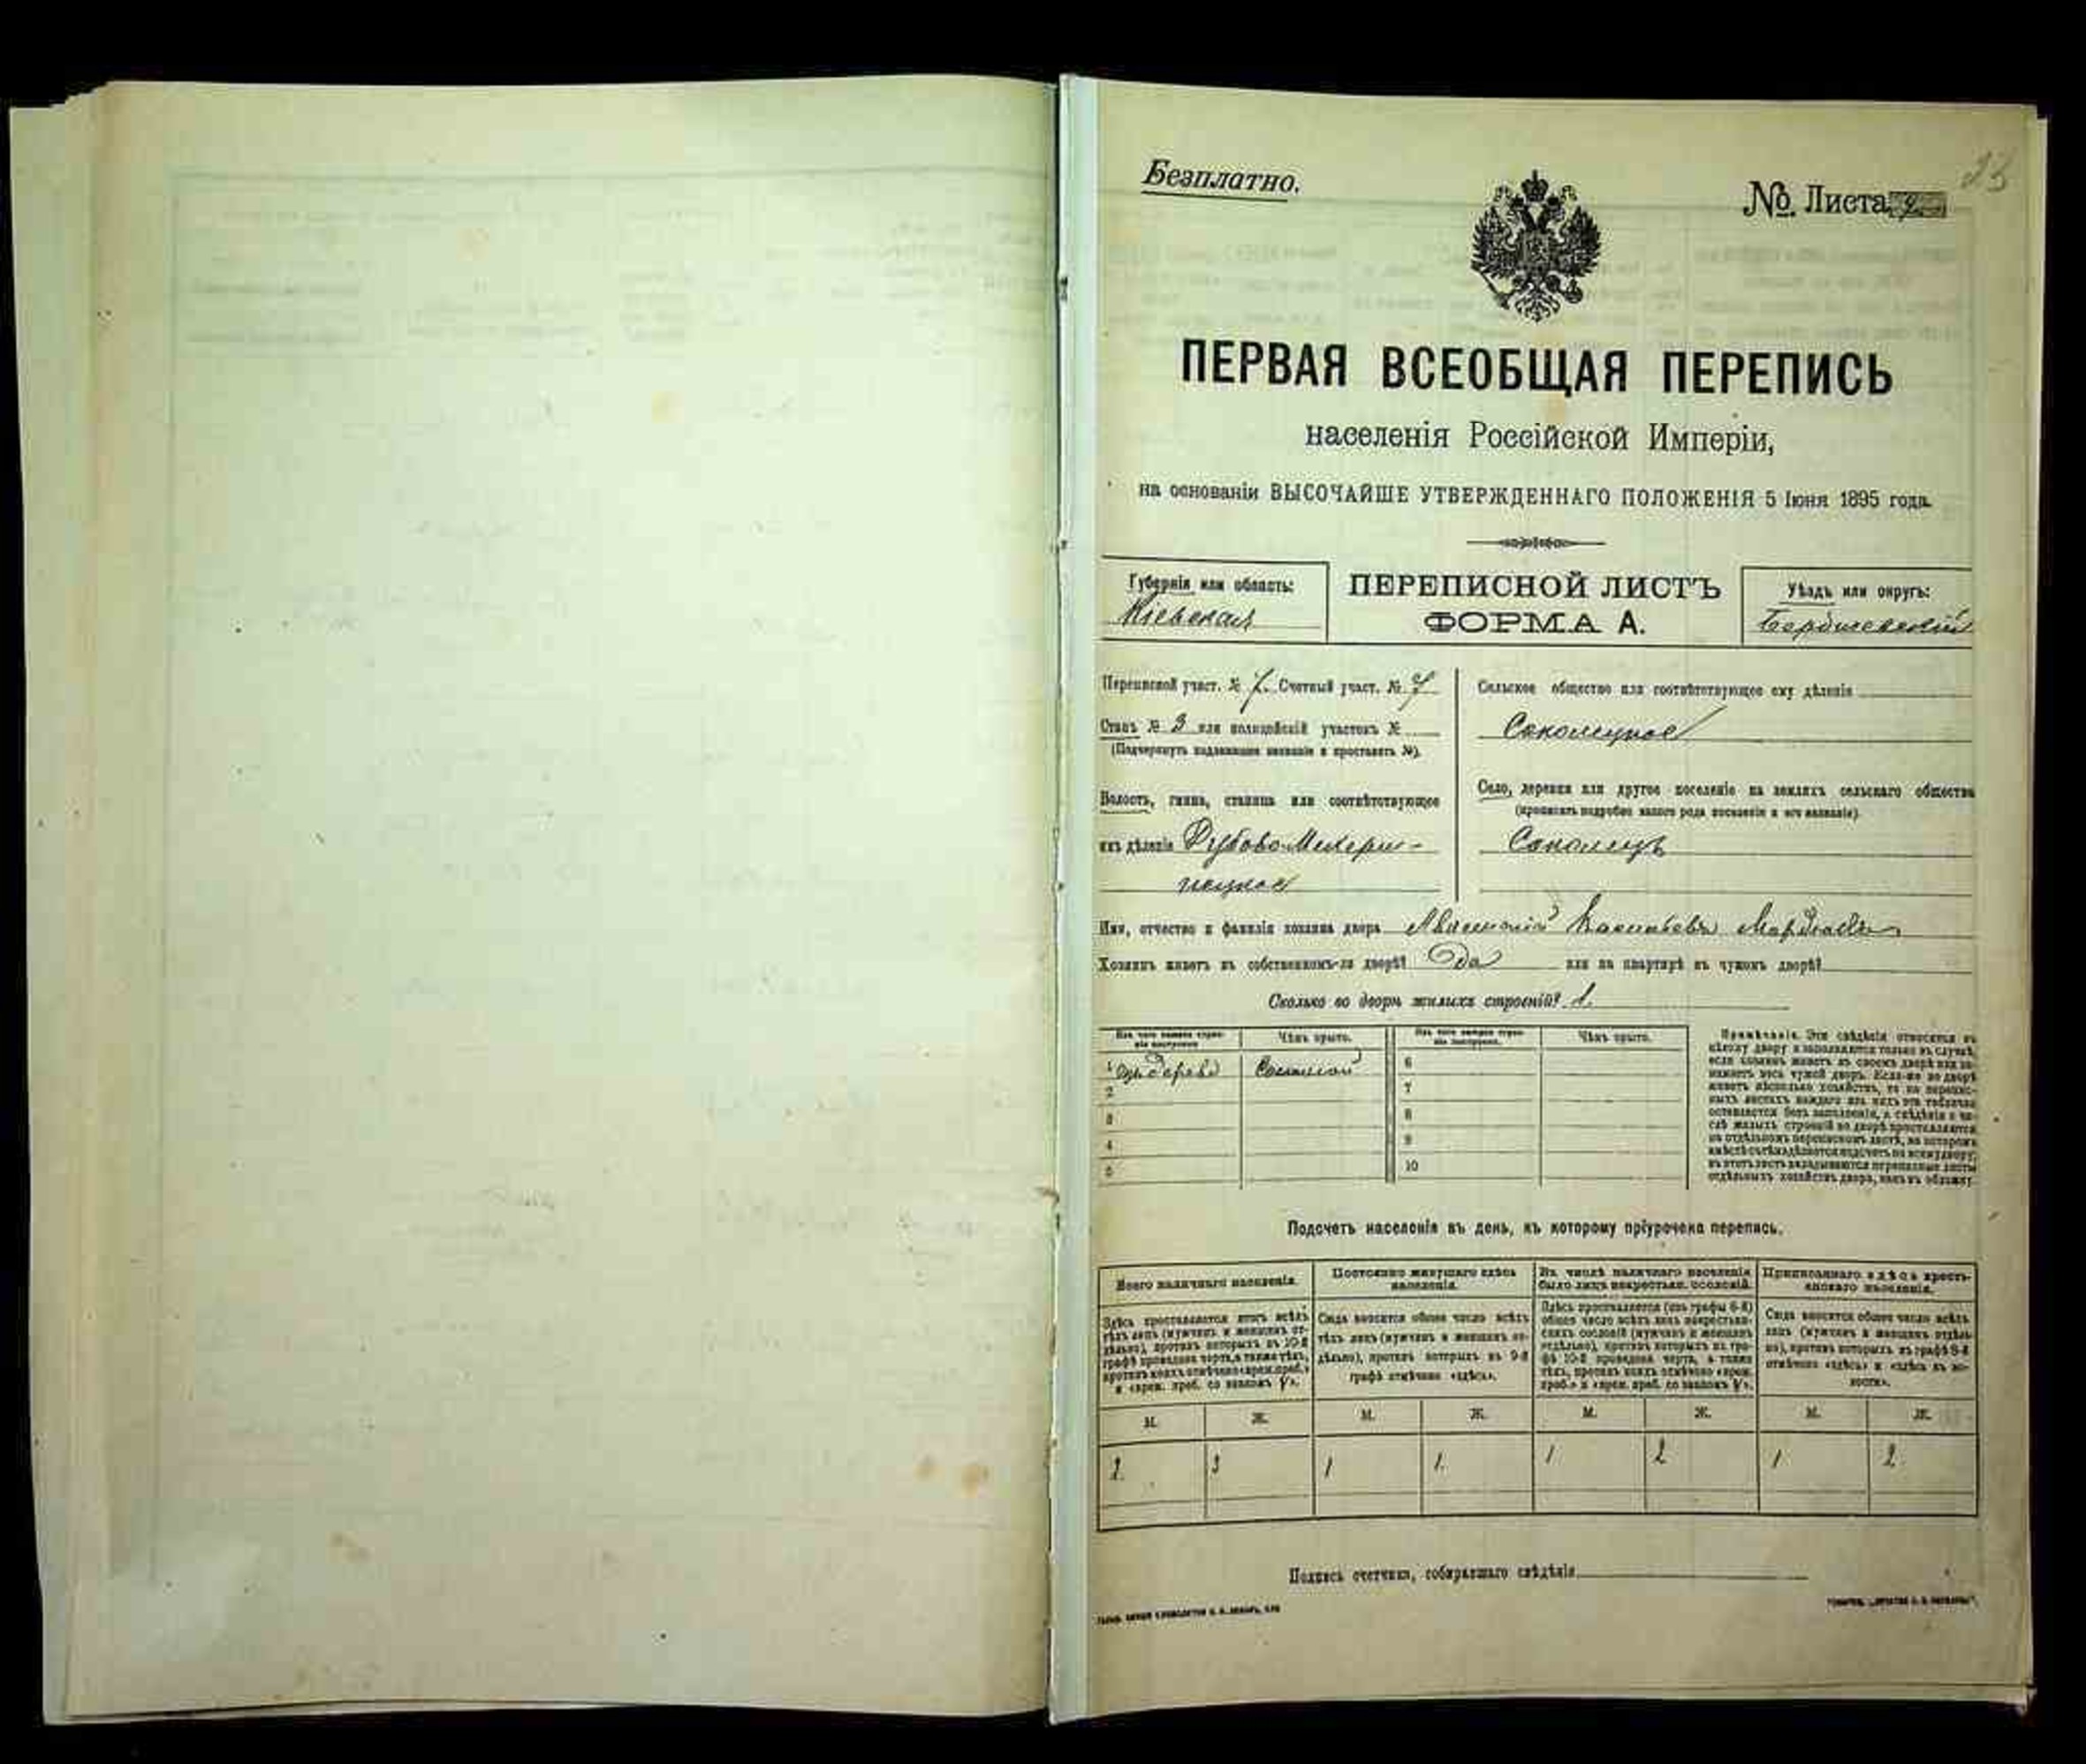 Безплатно.
23
№ Листа
ПЕРВАЯ ВСЕОБЩАЯ ПЕРЕПИСЬ
населенія Россійской Имперіи,
на основаніи ВЫСОЧАЙШЕ УТВЕРЖДЕННАГО ПОЛОЖЕНІЯ 5 Іюня 1895 года.
Губернія или область:
Кіевская
ПЕРЕПИСНОЙ ЛИСТЪ
ФОРМА А.
Уѣздъ или округъ:
Бердичевскій
Переписной участ. № 7. Счетный участ. № 7
Станъ № 3 или полицейскій участокъ №
(Подчеркнуть надлежащее названіе и проставить №).
Волость, гмина, станица или соотвѣтствующее
имъ дѣленіе
Сельское общество или соотвѣтствующее ему дѣленіе
Соколецкое
Село, деревня или другое поселеніе на земляхъ сельскаго общества
(прописать подробно какого рода поселеніе и его названіе).
Соколецъ
Имя, отчество и фамилія хозяина двора
Хозяинъ живетъ въ собственномъ-ли дворѣ? Да или на квартирѣ въ чужомъ дворѣ?
Сколько во дворѣ жилыхъ строеній? 1.
Изъ чего каждое строеніе построено.
Чѣмъ крыто.
Изъ чего каждое строеніе построено.
Чѣмъ крыто.
1 изъ дерева Соломой
2
3
4
5
6
7
8
9
10
Примѣчаніе. Эти свѣдѣнія относятся къ
цѣлому двору и заполняются только въ случаѣ,
если хозяинъ живетъ въ своемъ дворѣ или за-
нимаетъ весь чужой дворъ. Если-же во дворѣ
живетъ нѣсколько хозяйствъ, то на перепис-
ныхъ листахъ каждаго изъ нихъ эта табличка
оставляется безъ заполненія, а свѣдѣнія о чи-
слѣ жилыхъ строеній во дворѣ проставляются
на отдѣльномъ переписномъ листѣ, на которомъ
вмѣстѣ съ тѣмъ дѣлается подсчетъ по всему двору;
въ этотъ листъ вкладываются переписные листы
отдѣльныхъ хозяйствъ двора, какъ въ обложку.
Подсчетъ населенія въ день, къ которому пріурочена перепись.
Всего наличнаго населенія.
Здѣсь проставляется итогъ всѣхъ
тѣхъ лицъ (мужчинъ и женщинъ от-
дѣльно), противъ которыхъ въ 10-й
графѣ проведена черта, а также тѣхъ,
противъ коихъ отмѣчено «врем. преб.»
Постоянно живущаго здѣсь
населенія.
Сюда вносится общее число всѣхъ
тѣхъ лицъ (мужчинъ и женщинъ от-
дѣльно), противъ которыхъ въ 9-й
графѣ отмѣчено «здѣсь».
Въ числѣ наличнаго населенія
было лицъ некрестьян. сословій.
Здѣсь проставляется (изъ графы 6-й)
общее число всѣхъ лицъ некрестьян-
скихъ сословій (мужчинъ и женщинъ
отдѣльно), противъ которыхъ въ гра-
фѣ 10-й проведена черта, а также
тѣхъ, противъ коихъ отмѣчено «врем.
Приписаннаго здѣсь кресть-
янскаго населенія.
Сюда вносится общее число всѣхъ
лицъ (мужчинъ и женщинъ отдѣль-
но), противъ которыхъ въ графѣ 8-й
отмѣчено «здѣсь» и «здѣсь въ во-
лости».
М. Ж. М. Ж. М. Ж. М. Ж.
2 3 1 1. 1 2 1 2.
Подпись счетчика, собиравшаго свѣдѣнія